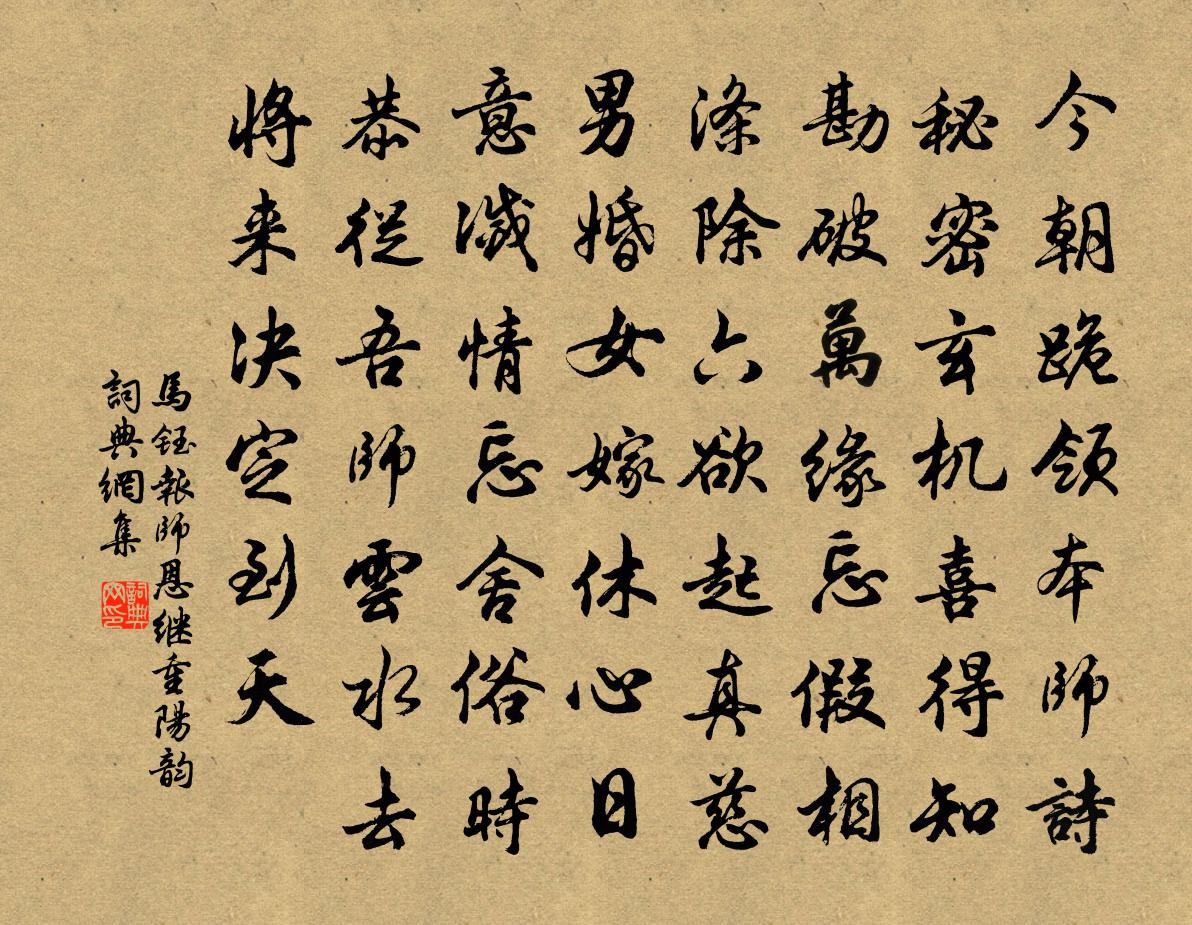 今朝跪領本師詩
秘密玄机喜得知
勘破萬緣忘假相
滌除六欲起真慈
男婚女嫁休心日
意滅情忘舍俗時
恭從吾師雲水去
將来決定到天
馬鈺報師恩继重陽韵
詞典網集
詞典网印